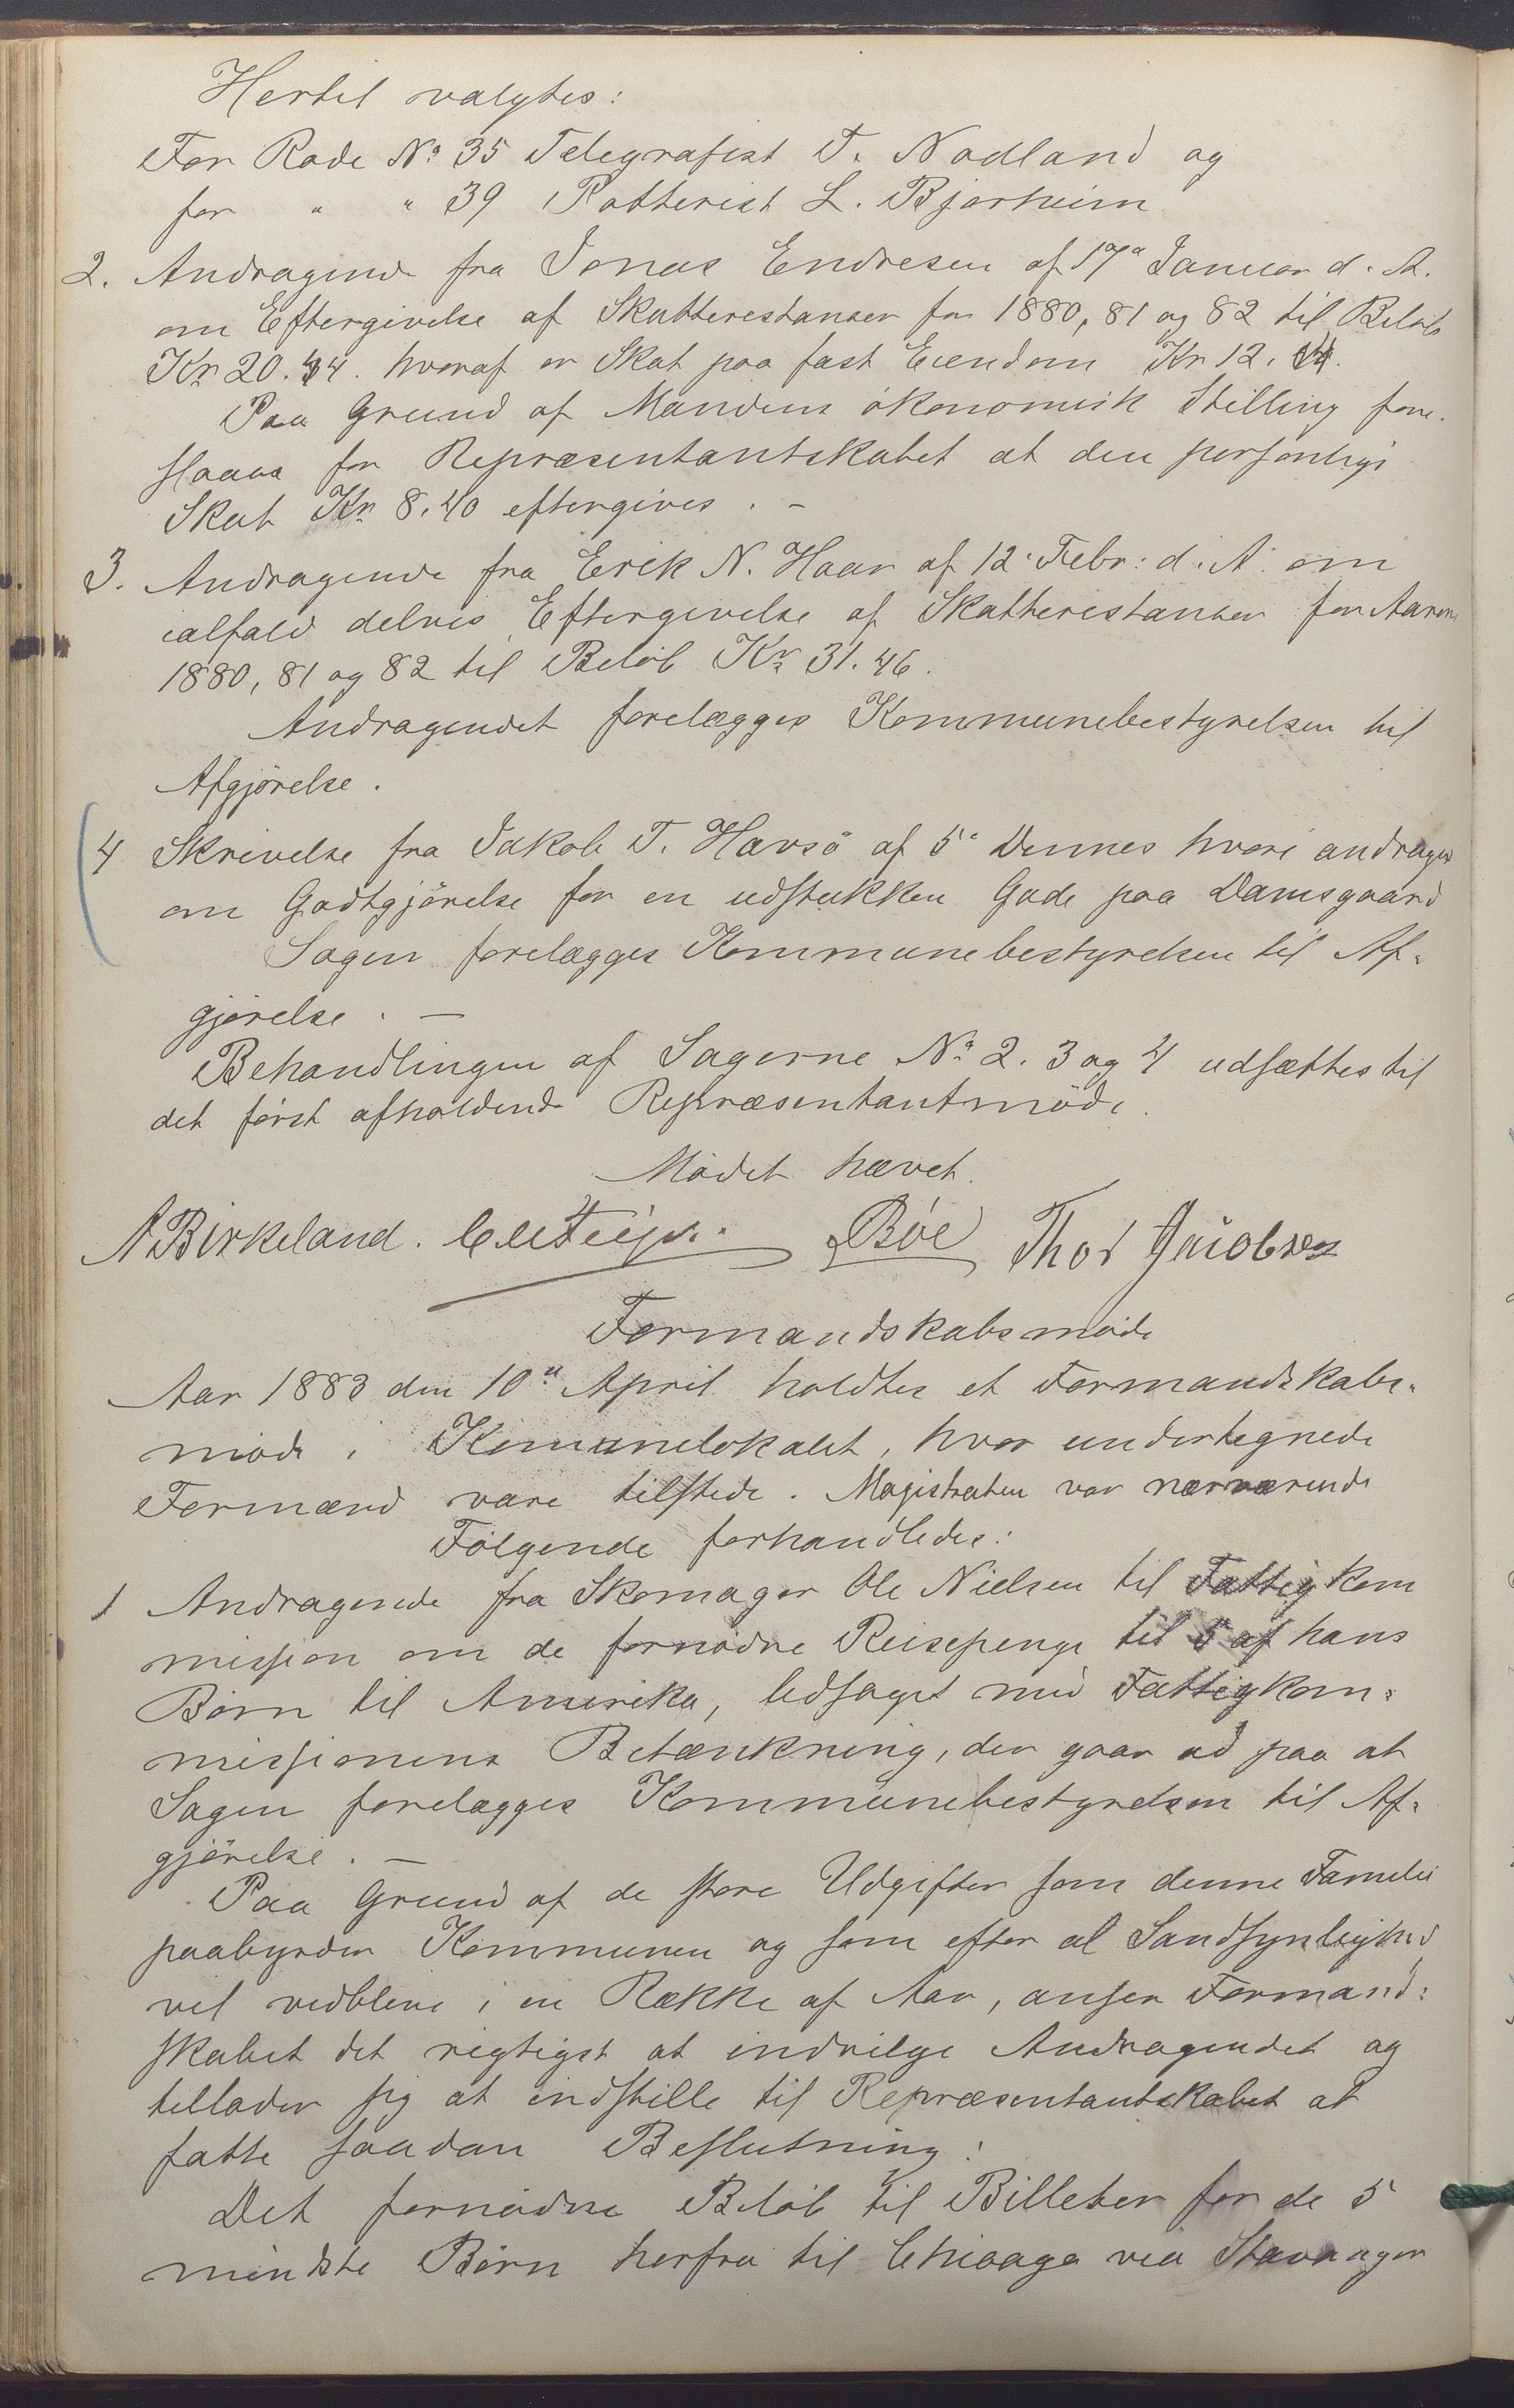 Hertil valgtes:
For Rode No 35 Telegrafist T. Nodland og
for " " 39 Potterist L. Bjorheim
2. Andragende fra Jonas Endresen af 17de Januar d. A.
om Eftergivelse af Skatterestanser for 1880, 81 og 82 til Beløb
Kr 20.44. hvoraf er Skat paa fast Eiendom Kr 12.
Paa Grund af Mandens økonomisk Stilling fore-
slaaes for Repræsentantskabet at den personlige
Skat Kr 8.40 eftergives. -
3. Andragende fra Erik N. Haar af 12. Febr: d. A. om
ialfald delvis Eftergivelse af Skatterestanser for Aarene
1880, 81 og 82 til Beløb Kr 31.46.
Andragendet forelægges Kommunebestyrelsen til
Afgjørelse.
4 Skrivelse fra Jakob T. Havsø af 5. Dennes hvori andrages
om Godtgjørelse for en udstukken Gade paa Damsgaard
Sagen forelægges Kommunebestyrelsen til Af-
gjørelse. -
Behandlingen af Sagerne No 2. 3 og 4 udsættes til
det først afholdende Repræsentantmøde.
Mødet hævet.
A Birkeland. Bøe Thos Jacobsen
Formandskabsmøde
Aar 1883 den 10de April holdtes et Formandskabs-
møde i Komunelokalet, hvor undertegnede
Formænd vare tilstede. Magistraten var nærværende
Følgende forhandledes:
1 Andragende fra Skomager Ole Nielsen til Fattigkom
mission om de fornødne Reisepenge til 5 af hans
Børn til Amerika, ledsaget med Fattigkom-
missionens Betænkning, der gaar ud paa at
Sagen forelægges Kommunebestyrelsen til Af-
gjørelse. -
Paa Grund af de store Udgifter som denne Familie
paabyrder Kommunen og som efter al Sandsynlighed
vil vedblive i en Række af Aar, anser Formand-
skabet det rigtigst at indvilge Andragendet og
tillader sig at indstille til Repræsentantskabet at
fatte saadan Beslutning:
Det fornødne Beløb til Billeter for de 5
mindste Børn herfra til Chicago via Stavanger